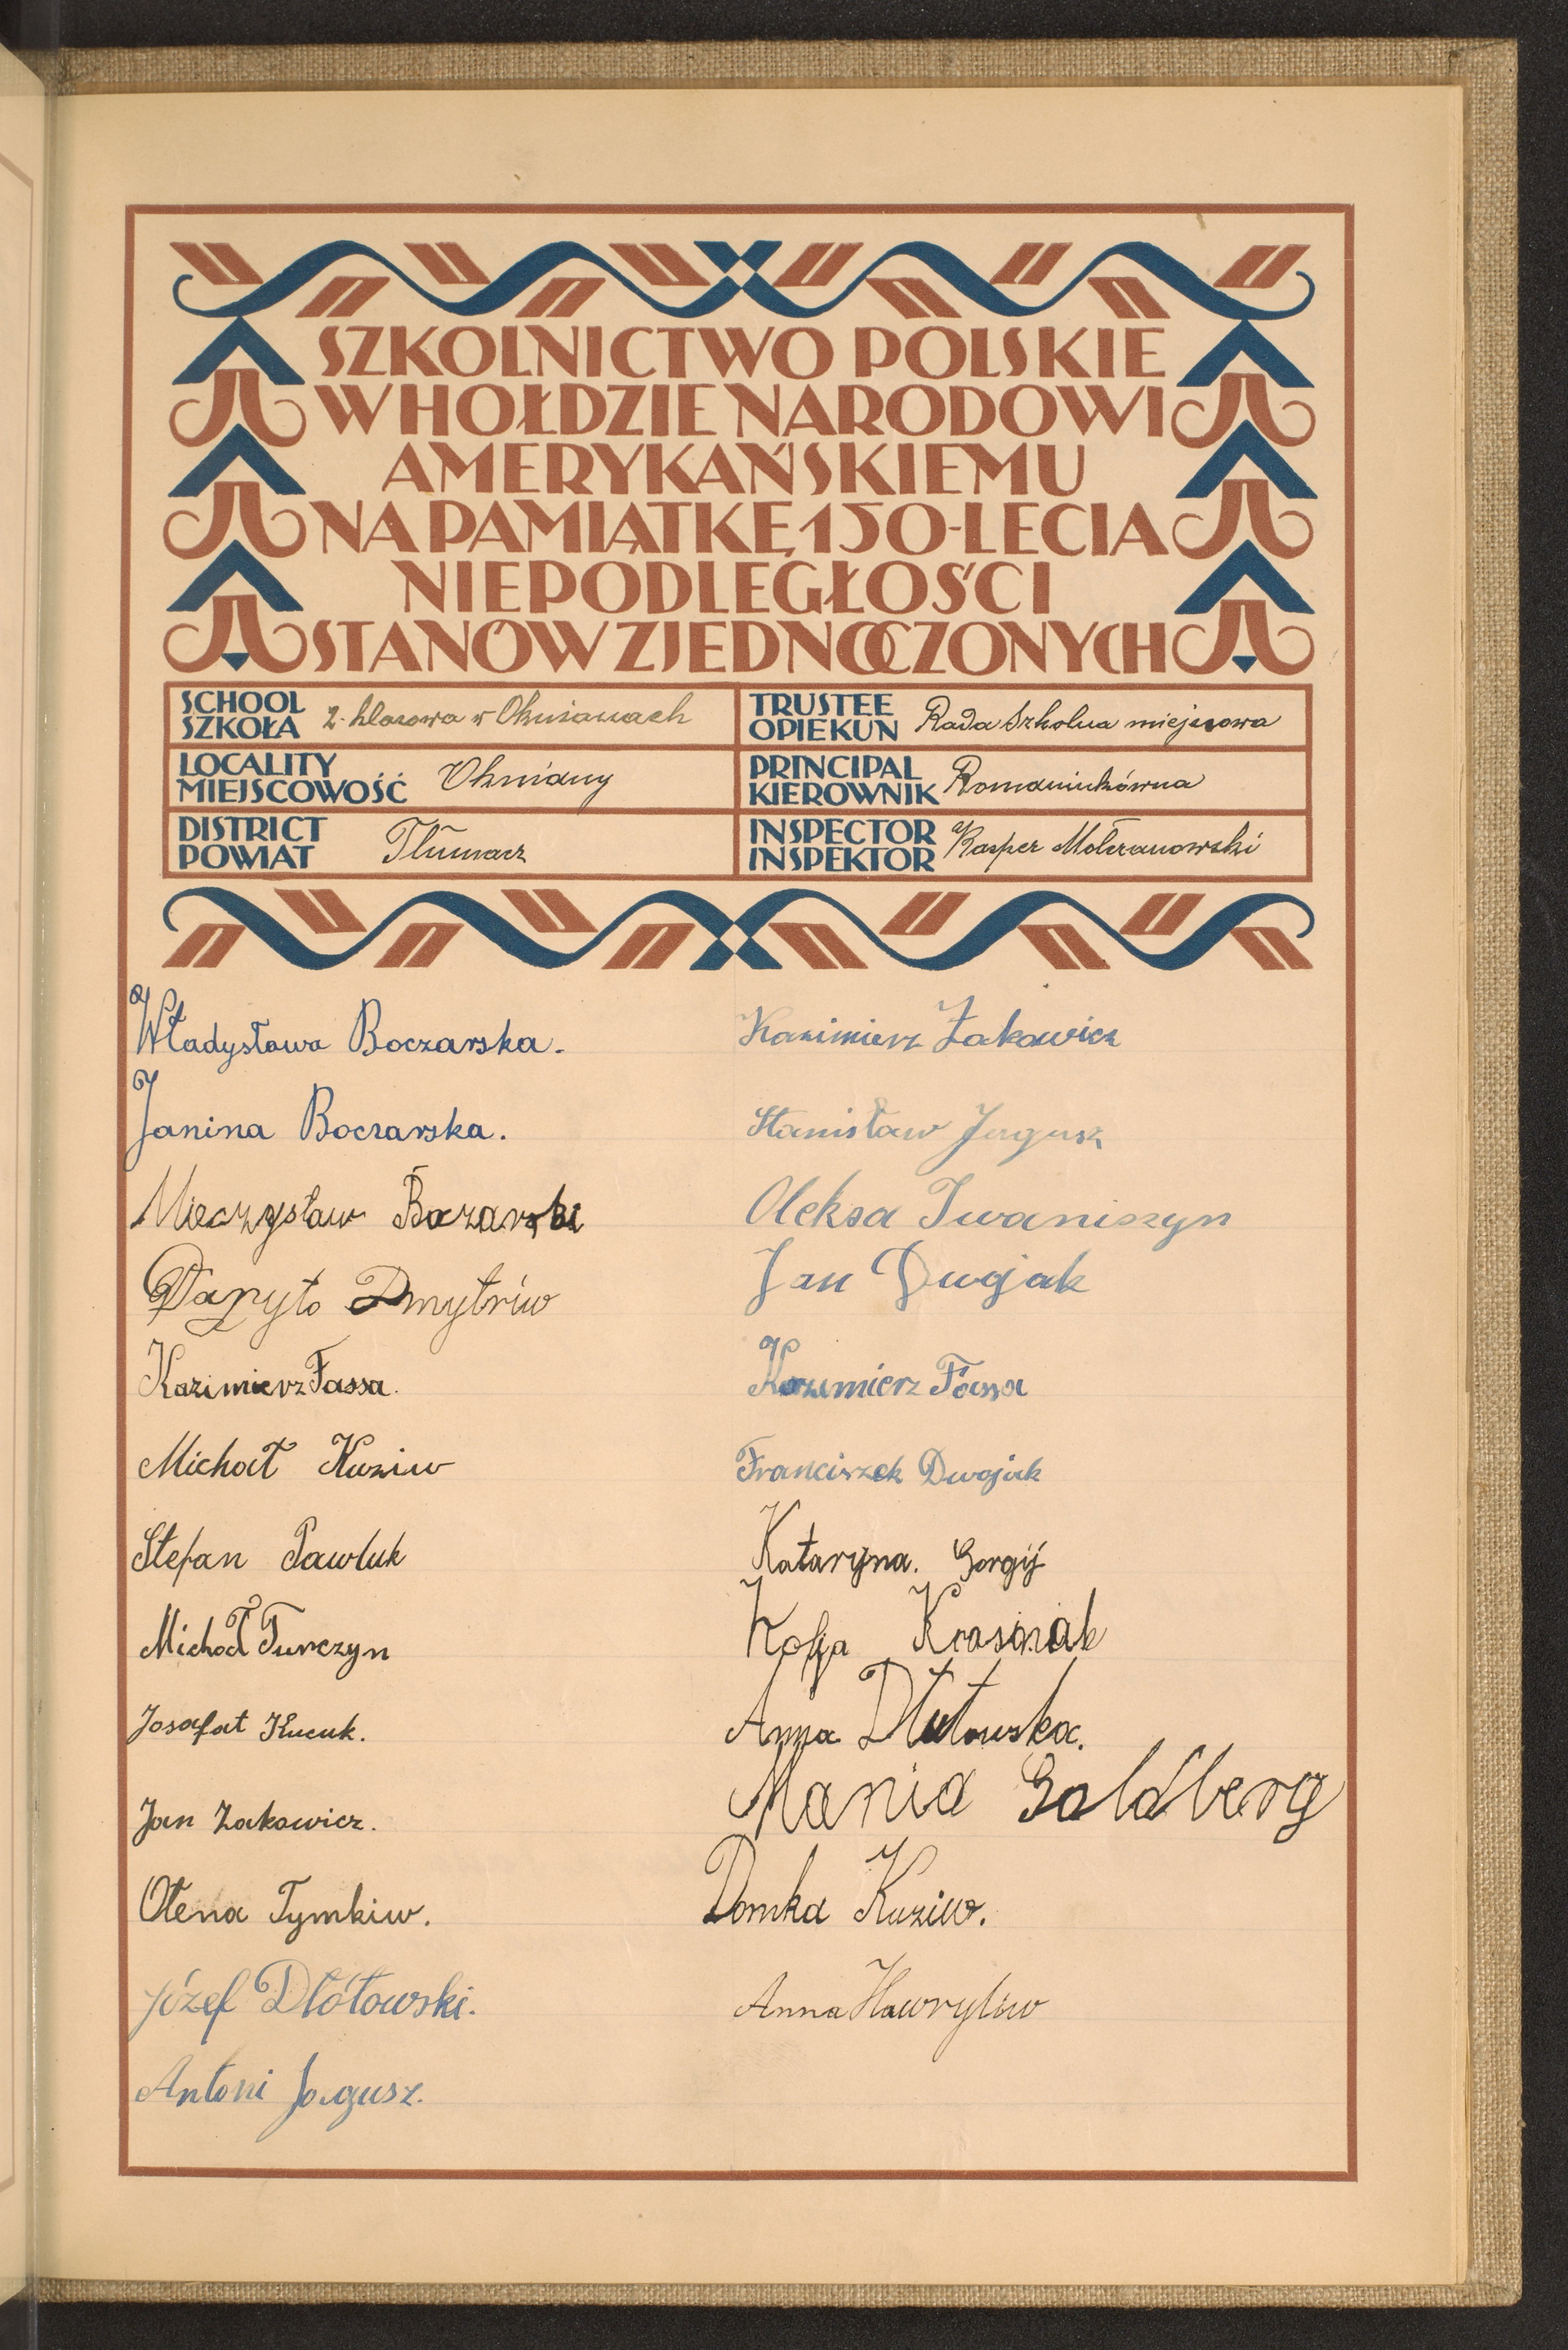 SZKOLNICTWO POLSKIE
W HOŁDZIE NARODOWI
AMERYKAŃSKIEMU
NA PAMIĄTKĘ 150-LECIA
NIEPODLEGŁOŚCI
STANÓW ZJEDNOCZONYCH
SCHOOL
SZKOŁA 2-klasowa w Oknianach
TRUSTEE
OPIEKUN Rada Szkolna miejscowa
LOCALITY
MIEJSCOWOŚĆ Okniany
PRINCIPAL
KIEROWNIK Romaniukówna
DISTRICT
POWIAT Tłumacz
INSPECTOR
INSPEKTOR Kasper Mołczanowski
Władysława Boczarska.
Janina Boczarska.
Mieczysław Boczarski
Daryło Dmytrów
Kazimierz Fassa.
Michał Kuziw
Stefan Pawluk
Michał Turczyn
Josafat Kucuk.
Jan Żakowicz.
Ołena Tymkiw.
Józef Dłótowski.
Antoni Jagusz.
Kazimierz Żakowicz
Stanisław Jagusz
Oleksa Iwaniszyn
Jan Dwojak
Kazimierz Fassa
Franciszek Dwojak
Kataryna. Gorgij
Kasia
Anna Dłutowska.
Mania Goldberg
Domka Kuziw.
Anna Hawryliw